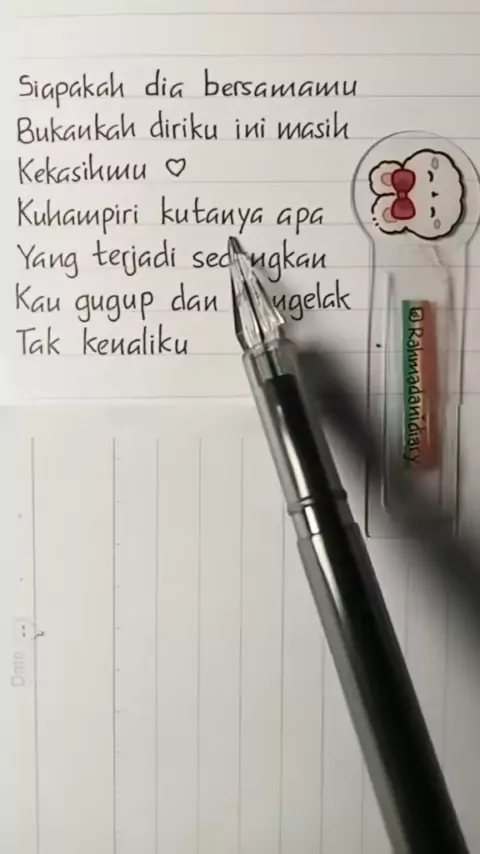 Siapakah dia bersamamu
Bukankah diriku ini masih
Kekasihmu ♡
Kuhampiri kutanya apa
Yang terjadi sedangkan
Kau gugup dan
Tak kenaliku
@Rahmadanidiary
Date